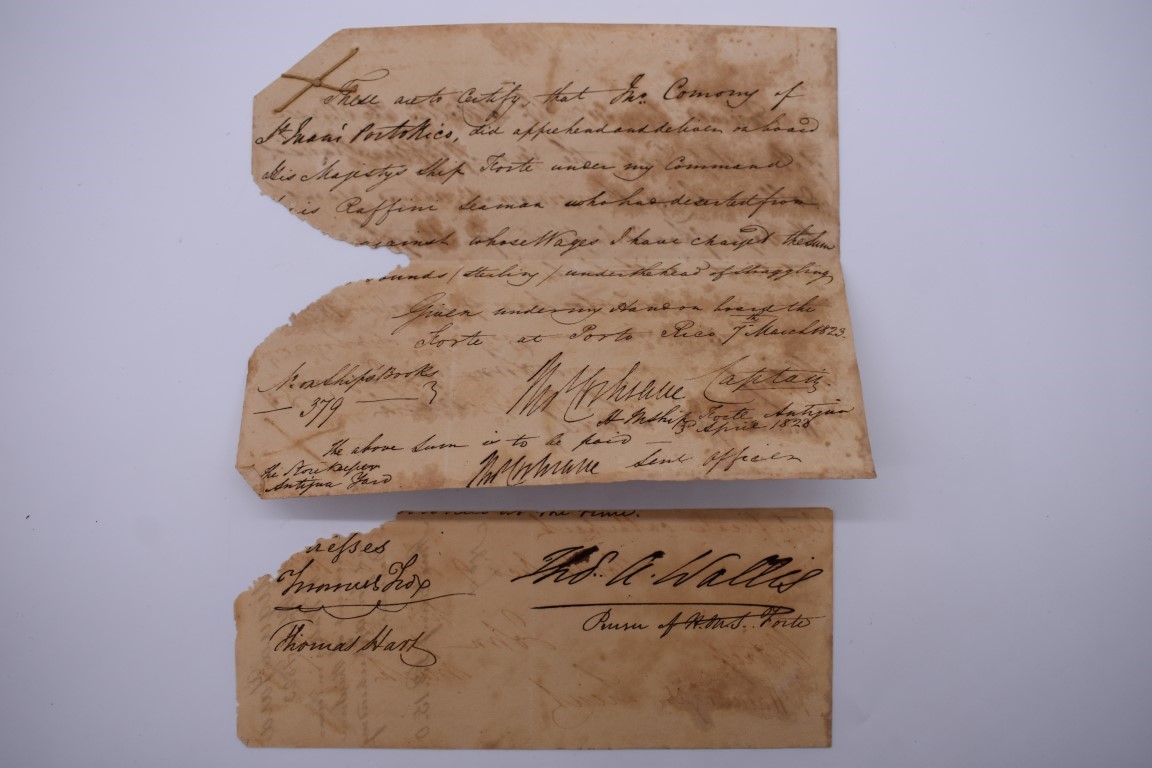 These are to Certify, that Jno. Comony of
St. Juan's Porto Rico, did apprehend and deliver on board
His Majesty's Ship Forte under my Command
is Raffini Seaman who had deserted from
against whose Wages I have charged the Sum
ounds (Sterling) under the head of Straggling
Given under my Hand on board the
Forte at Porto Rico 7th March 1823.
No. on Ship's Books
— 379 —
Thos Cochrane Captain
H M Ship Forte Antigua
April 1823
The above Sum is to be paid —
The Storekeeper
Antigua Yard
Thos Cochrane Senr Officer
at the time.
nesses
Thomas Hart
Thos. A. Wallis
Purser of H.M.S. Forte